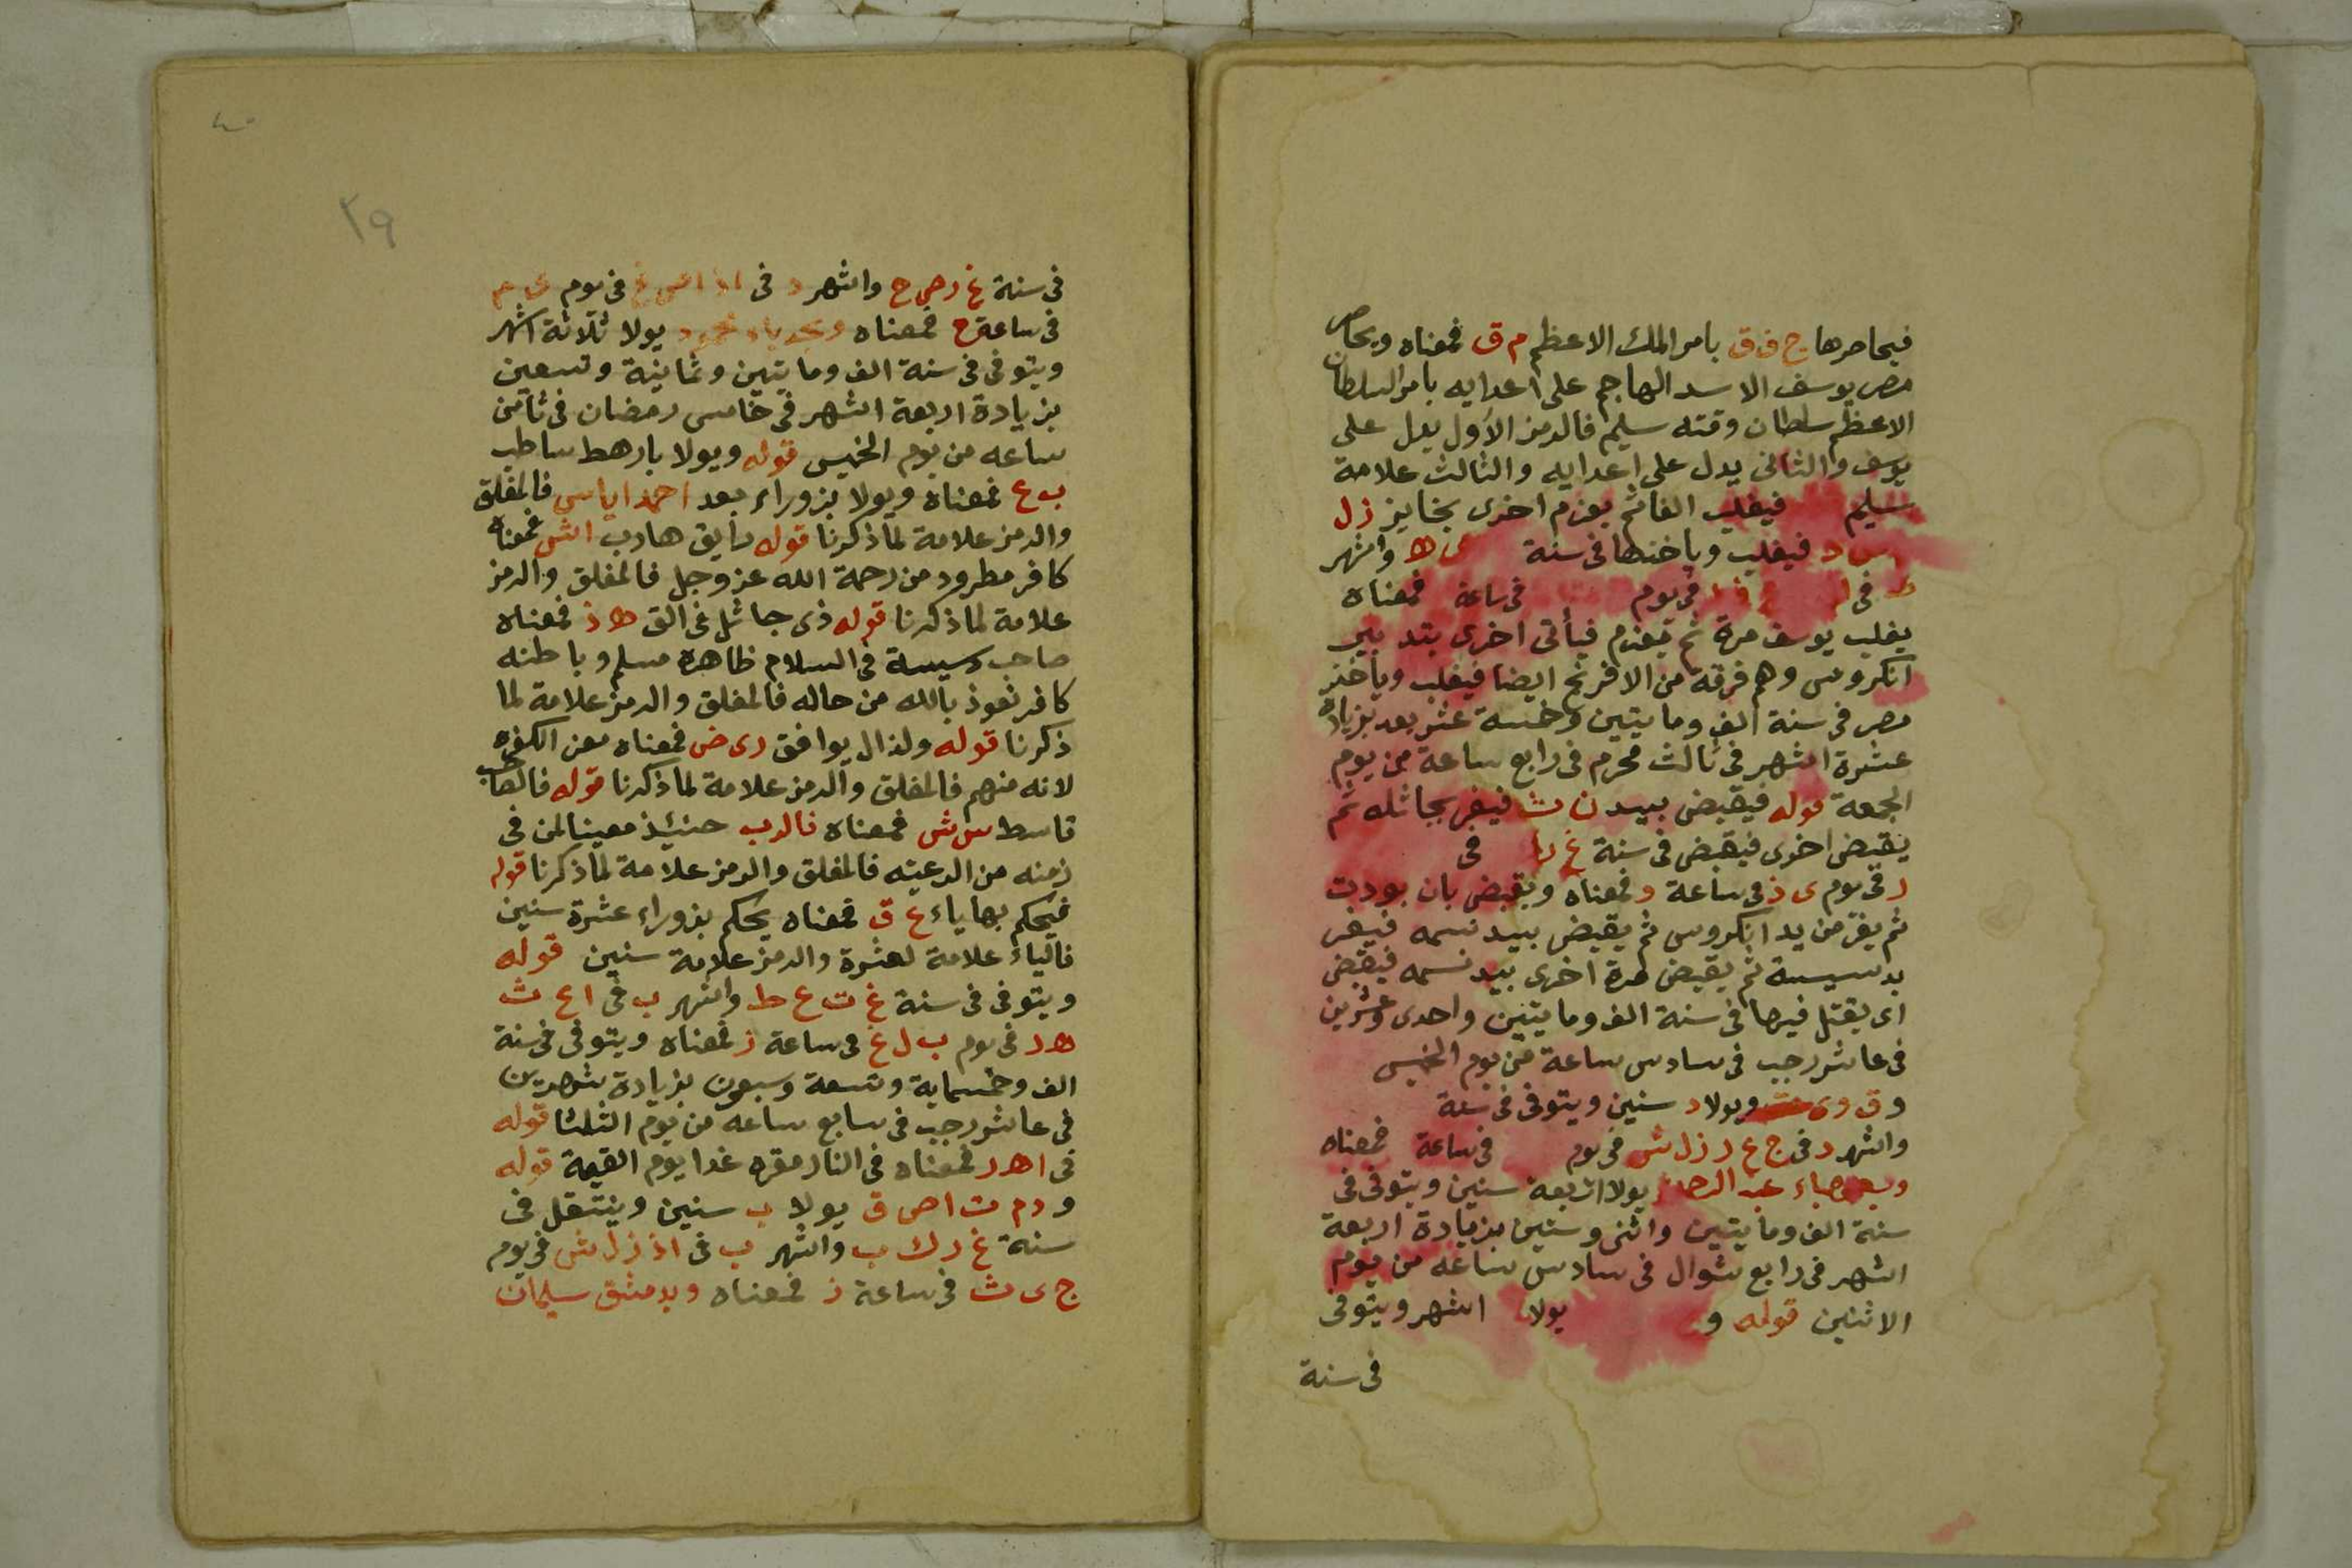 فيحاصرها ج ف ق بامر الملك الاعظم م ق فمعناه ويحاصر
مصر يوسف الاسد الهاجم على اعدايه بامر السلطان
الاعظم سلطان وقته سليم فالرمز الأول يدل على
يوسف والثانى يدل على اعدايه والثالث علامة
سليم فيغلب الفا ثم يعزم اخرى بخايز ز ل
فيغلب وياخذها فى سنة ه واشهر
فى فى يوم فى ساعة فمعناه
يغلب يوسف مرة ثم يعزم فيأتى اخرى بتدبير
انكروس وهم فرقة من الافرنج ايضا فيغلب ويأخذ
مصر فى سنة الف ومايتين وخمسة عشر بعد بزيادة
عشرة اشهر فى ثالث محرم فى رابع ساعة من يوم
الجمعة قوله فيقبض بيد ن ث فيفر بجاثله ثم
يقبض اخرى فيقبض فى سنة غ ر فى
ر فى يوم ى ذ فى ساعة و فمعناه ويقبض بان
ثم يفر من يد انكروس ثم يقبض بيد نسمه فيفر
بدسيسة ثم يقبض مرة اخرى بيد نسمه فيقبض
اى يقتل فيها فى سنة الف ومايتين واحدى وعشرين
فى عاشر رجب فى سادس ساعة من يوم الخميس
و ق و ى ويولا د سنين ويتوفى فى سنة
واشهر د فى ج ع ر ز ل ش فى يوم فى ساعة فمعناه
يولا اربعة سنين ويتوفى فى
سنة الف ومايتين واثنى وستين بزيادة اربعة
اشهر فى رابع شوال فى سادس ساعه من يوم
الاثنين قوله و يولا اشهر ويتوفى
فى سنة
٢٩
فى سنة غ ر ص ح واشهر د فى فى يوم
فى ساعة ح فمعناه يولا ثلاثة اشهر
ويتوفى فى سنة الف ومايتين وثمانية وتسعين
بزيادة اربعة اشهر فى خامس رمضان فى ثامن
ساعه من يوم الخميس قوله ويولا بارهط ساطب
ب ع فمعناه ويولا بزوراء بعد احمد اياس فالمغلق
والرمز علامة لما ذكرنا قوله سايق هارب ا ش فمعناه
كافر مطرود من رحمة الله عز وجل فالمغلق والرمز
علامة لما ذكرنا قوله ذى جاثل فى الق ه ذ فمعناه
صاحب دسيسة فى السلام ظاهره مسلم وباطنه
كافر نعوذ بالله من حاله فالمغلق والرمز علامة لما
ذكرنا قوله ولذال يوافق ر ى ض فمعناه معن الكفره
لانه منهم فالمغلق والرمز علامة لما ذكرنا قوله فالصاحب
قاسط س ش فمعناه فالرب حنيئذ معينا لمن فى
زمنه من الرعيه فالمغلق والرمز علامة لما ذكرنا قوله
فيحكم بها ياء ع ق فمعناه يحكم بزوراء عشرة سنين
فالياء علامة لعشرة والرمز علامة سنين قوله
ويتوفى فى سنة غ ت ع ط واشهر ب فى ا ع ث
ه د فى يوم ب ل غ فى ساعة ز فمعناه ويتوفى فى سنة
الف وخمسماية وتسعة وسبعون بزيادة شهرين
فى عاشر رجب فى سابع ساعه من يوم الثلثا قوله
فى ا ه ر فمعناه فى النار مقره غدا يوم القيمة قوله
و د م ت ا ص ق يولا ب سنين وينتقل فى
سنة غ ر ك ب واشهر ب فى ا ذ ز ل ش فى يوم
ج ى ث فى ساعة ز فمعناه وبدمشق سليمان